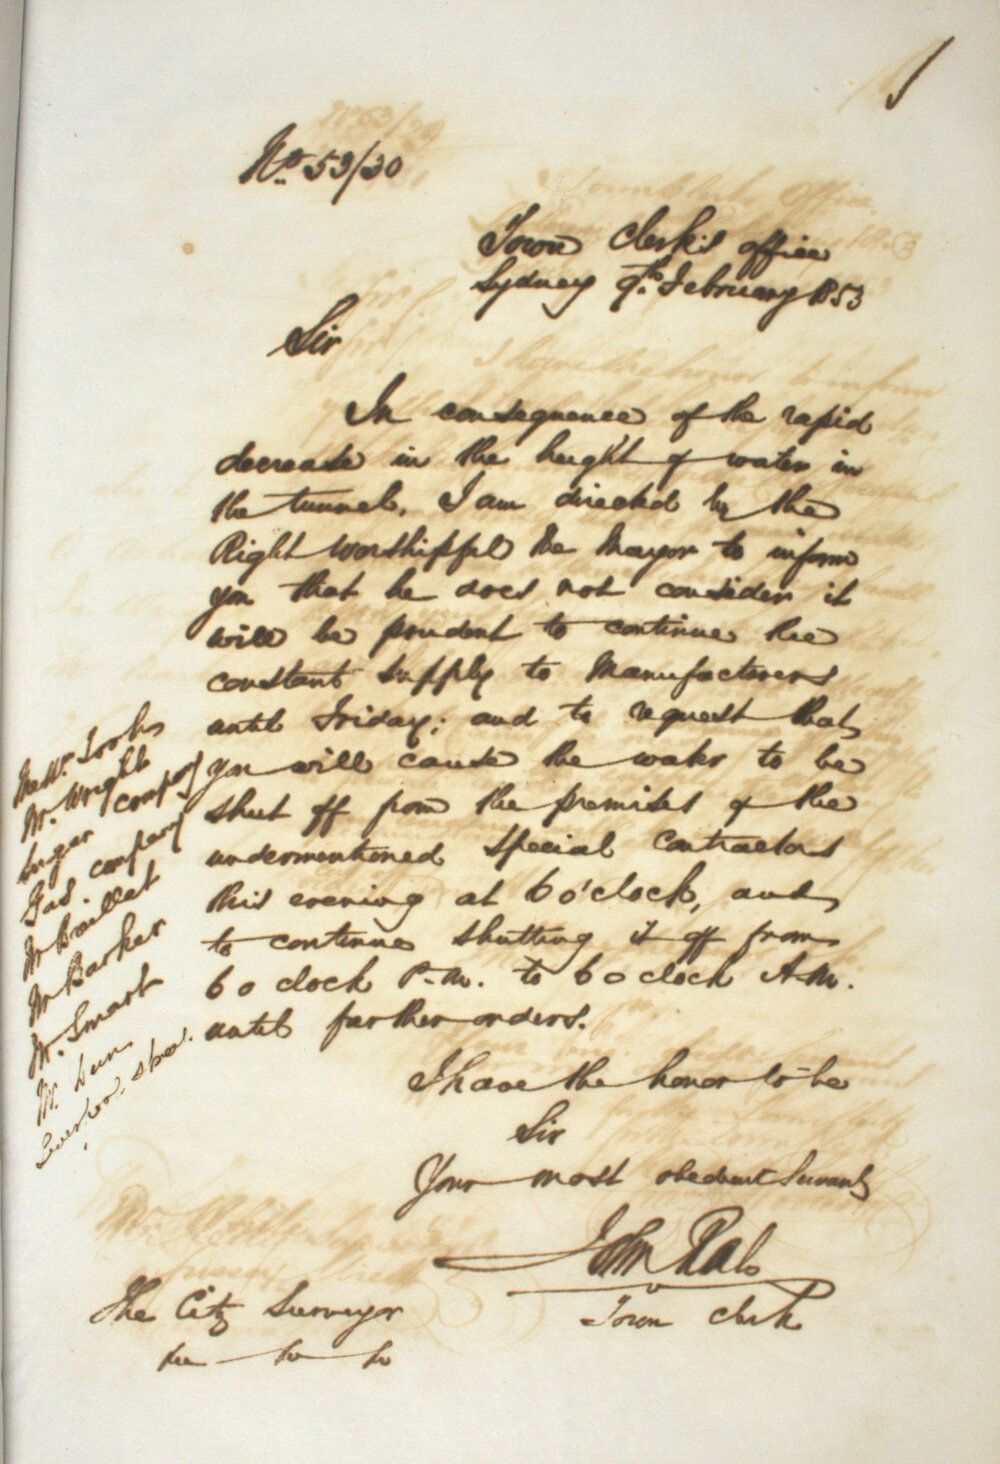 No. 53/30
Town Clerk's office
Sydney 9th February 1853
Sir
In consequence of the rapid
decrease in the height of water in
the tunnel, I am directed by the
Right Worshipful the Mayor to inform
you that he does not consider it
will be prudent to continue the
constant supply to Manufacturers
until Friday; and to request that
you will cause the water to be
shut off from the premises of the
undermentioned special contractors
this evening at 6 o'clock, and
to continue shutting it off from
6 o clock P.M. to 6 o clock A.M.
until further orders.
I have the honor to be
Sir
Your most obedient Servant
John Rae
Town Clerk
The City Surveyor
Mr. Wright
Sugar Company
Gas Company
Mr
Mr Barker
Mr. Smart
Mr. Dun